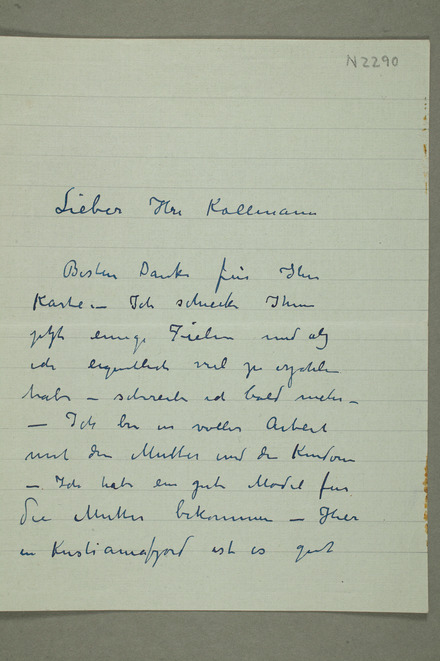 N2290
Lieber Herr Kollmann
Besten Dank für Ihre
Karte – Ich schicke Ihnen
jetzt einige Zeilen und als
ich eigentlich viel zu erzählen
habe – schreibe ich bald mehr –
– Ich bin in voller Arbeit
mit der Mutter und den Kindern
– Ich habe ein gute Model für
die Mutter bekommen – Hier
in Kristianiafjord ist es gut